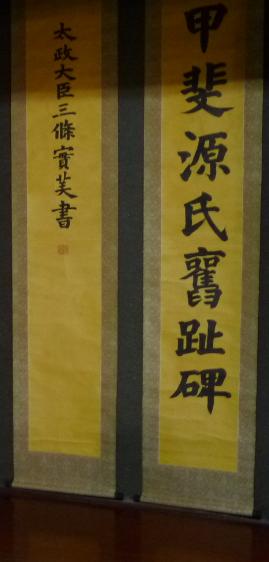 甲斐源氏舊趾碑
太政大臣三條實美書